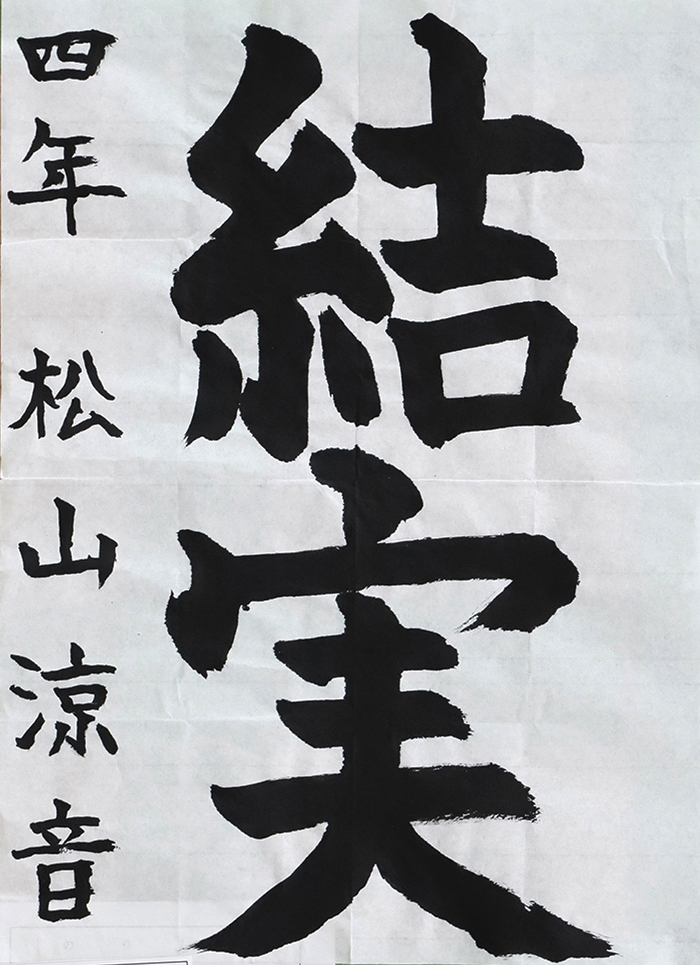 結実
四年 松山涼音